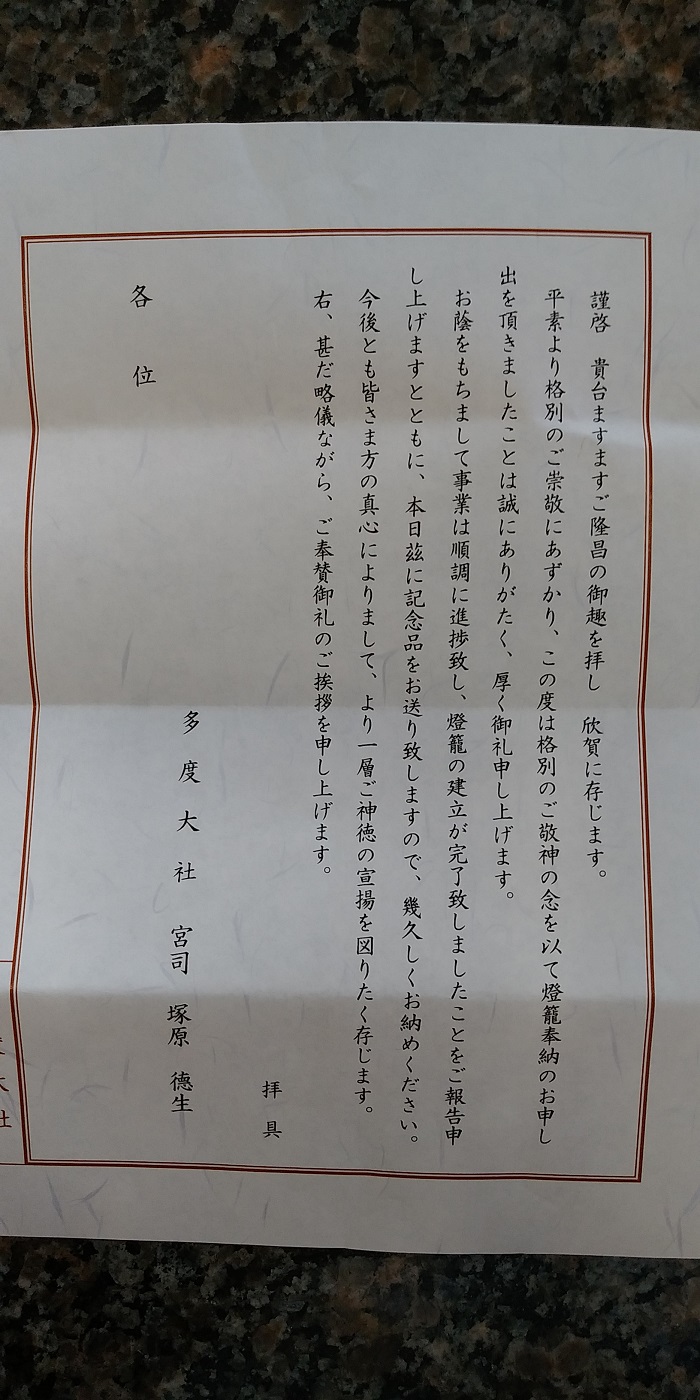 謹啓　貴台ますますご隆昌の御趣を拝し　欣賀に存じます。
平素より格別のご崇敬にあずかり、この度は格別のご敬神の念を以て燈籠奉納のお申し
出を頂きましたことは誠にありがたく、厚く御礼申し上げます。
お蔭をもちまして事業は順調に進捗致し、燈籠の建立が完了致しましたことをご報告申
し上げますとともに、本日茲に記念品をお送り致しますので、幾久しくお納めください。
今後とも皆さま方の真心によりまして、より一層ご神徳の宣揚を図りたく存じます。
右、甚だ略儀ながら、ご奉賛御礼のご挨拶を申し上げます。
拝具
多度大社　宮司　塚原　德生
各位
大社